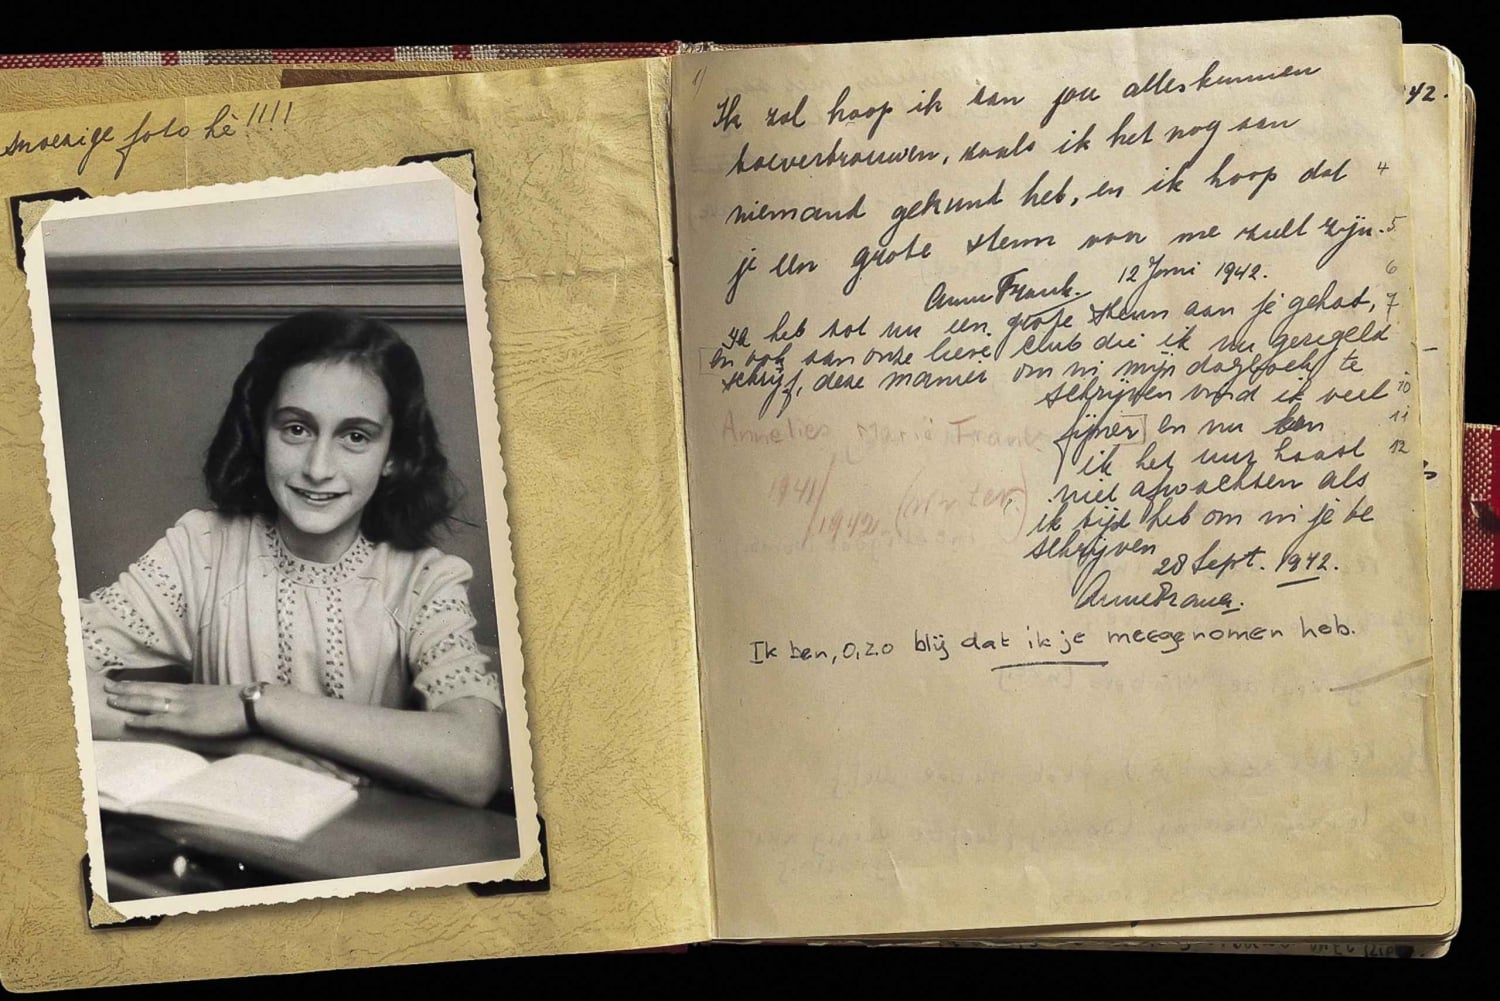 snoezige foto hè!!!!
Ik zal hoop ik aan jou alles kunnen
toevertrouwen, zoals ik het nog aan
niemand gekund heb, en ik hoop dat
je een grote steun voor me zult zijn.
Anne Frank. 12 Juni 1942.
Ik heb tot nu een grote steun aan je gehad,
en ook aan onze lieve club die ik nu geregeld
schrijf, deze manier om in mijn dagboek te
schrijven vind ik veel
fijner en nu kan
ik het uur haast
niet afwachten als
ik tijd heb om in je te
schrijven
28 Sept. 1942.
Anne Frank.
Annelies Marie Frank
1941/
/1942. 
Ik ben, O, zo blij dat ik je meegenomen heb.
42.
4
5
6
7
10
11
12